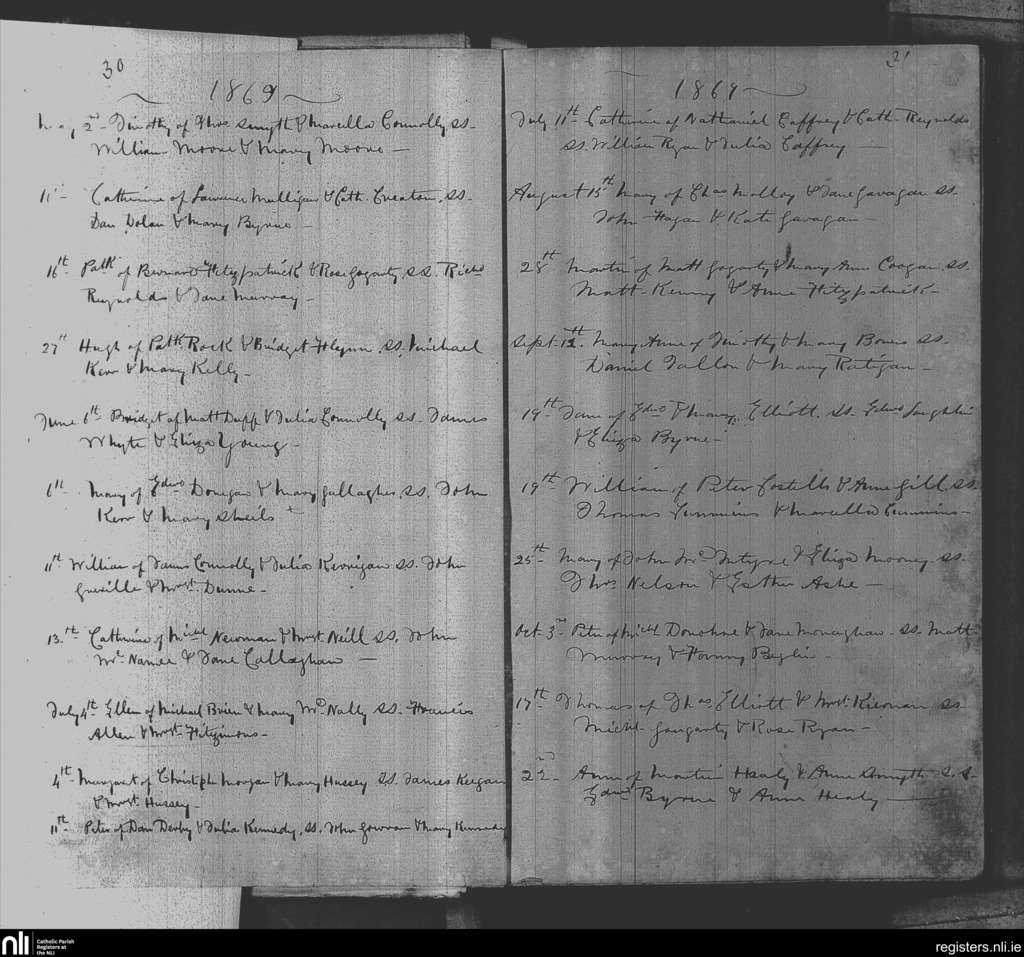 30
1869
May 2nd Timothy of Thos Smyth & Marcella Connolly SS.
William Moore & Mary Moore —
11th Catherine of Lawrence Mulligan & Cath. Creaton, SS.
Dan Dolan & Mary Byrne —
16th Patk of Bernard Fitzpatrick & Rose Gogarty, SS. Richd
Reynolds & Jane Murray —
27th Hugh of Patk Rock & Bridget Flynn, SS. Michael
Kerr & Mary Kelly —
June 6th Bridget of Matt Duff & Julia Connolly SS. James
Whyte & Eliza Young —
6th Mary of Edwd Donegan & Mary Gallagher, SS. John
Kerr & Mary Sheils
11th William of James Connolly & Julia Kernigan SS. John
Greville & Mrgt. Dunne —
13th Catherine of Michl Newman & Mrgt Neill SS. John
McNamee & Jane Callaghan —
July 4th Ellen of Michael Brien & Mary McNally SS. Francis
Allen & Mrgt. Fitzimons —
4th Margaret of Christph Morgan & Mary Hussey SS. James Keegan
& Mrgt Hussey —
11th Peter of Dan Derby & Julia Kennedy, SS. John Gowran & Mary Kennedy
31
1869
July 11th Catherine of Nathaniel Caffrey & Cath. Reynolds
SS. William Ryan & Julia Caffrey —
August 15th Mary of Chas Molloy & Jane Gavagan SS.
John Hagan & Kate Gavagan —
28th Martin of Matt Gogarty & Mary Anne Coogan SS.
Matt Kenny & Anne Fitzpatrick —
Sept. 12th Mary Anne of Timothy & Mary SS.
Daniel Fallon & Mary Ratigan —
19th Jane of Edwd & Mary Elliott. SS. Edwd Loughlin
& Eliza Byrne —
19th William of Peter Costello & Anne Gill SS.
Thomas Cummins & Marcella Cummins —
25th Mary of John McIntyre & Eliza Mooney SS.
Thos Nelson & Esther Ashe —
Oct. 3rd Peter of Michl Donohue & Jane Monaghan. SS. Matt
Murray & Fanny Beglin —
17th Thomas of Thos Elliott & Mrgt. Kiernan SS
Michl Gaugarty & Rose Ryan —
22nd Anne of Martin Healy & Anne Smyth S.S.
Edwd Byrne & Anne Healy —
nli
Catholic Parish
Registers at
the NLI
registers.nli.ie